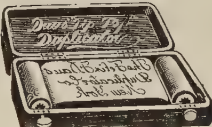 Daus' Tip Top
Duplicator
The Felix Daus
Duplicator Co
New York